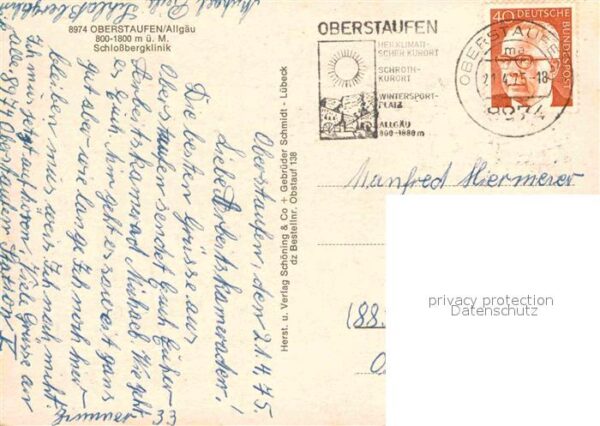 8974 OBERSTAUFEN/Allgäu
800-1800 m ü. M.
Schloßbergklinik
Oberstaufen, den 21.4.75
Liebe Arbeitskameraden,!
Die besten Grüsse aus
Oberstaufen sendet Euch Euer
Arbeitskamerad Michael. Wie geht
es Euch. Mir geht es soweit ganz
gut aber wie lange ich noch hier
bleiben muss weis ich noch nicht.
Ich muss jetzt Viele Grüsse an
alle 8974 Oberstaufen Station I
Zimmer 33
Michael Schloßbergklinik
Herst. u. Verlag Schöning & Co + Gebrüder Schmidt - Lübeck
dz Bestellnr. Obstauf 138
OBERSTAUFEN
HEILKLIMATI-
SCHER KURORT
SCHROTH-
KURORT
WINTERSPORT-
PLATZ
ALLGÄU
800-1800 m
OBERSTAUFEN
ma
21.4.75-18
8974
40 DEUTSCHE
BUNDESPOST
Manfred Hermeier
(88
privacy protection
Datenschutz